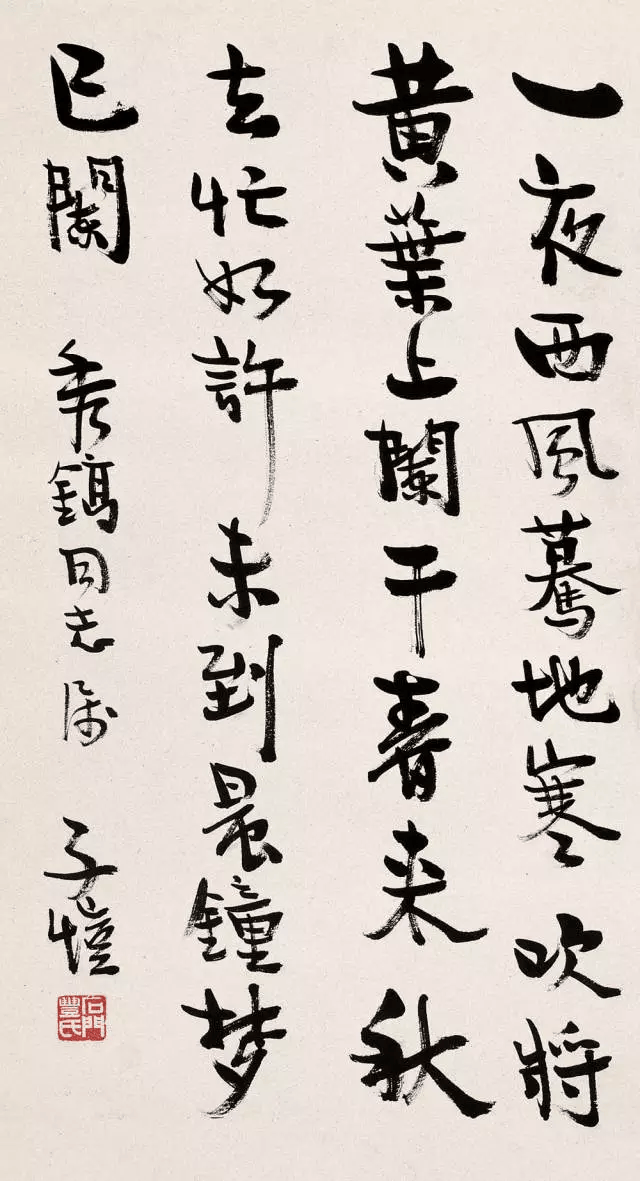 一夜西風驀地寒吹將
黃葉上闌干春来秋
去忙如許未到晨鐘夢
已闌
秀鎬同志属
子愷
石門豐氏